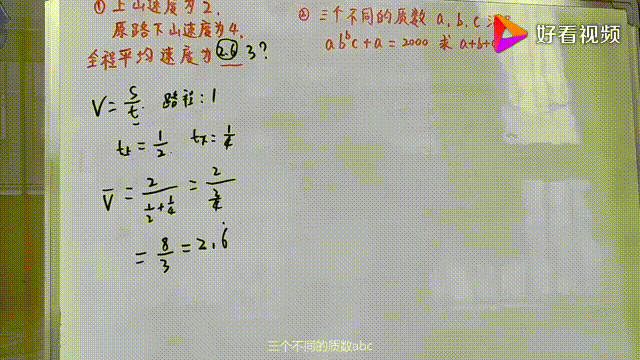 ① 上山速度为2.
原路下山速度为4.
全程平均速度为 2.6 3?
V = S/t 路程:1
t上 = 1/2. t下 = 1/4
V̄ = 2/(1/2+1/4) = 2/(3/4)
= 8/3 = 2.6̇
② 三个不同的质数 a, b, c
abᵇc + a = 2000 求 a+b+
好看视频
三个不同的质数abc